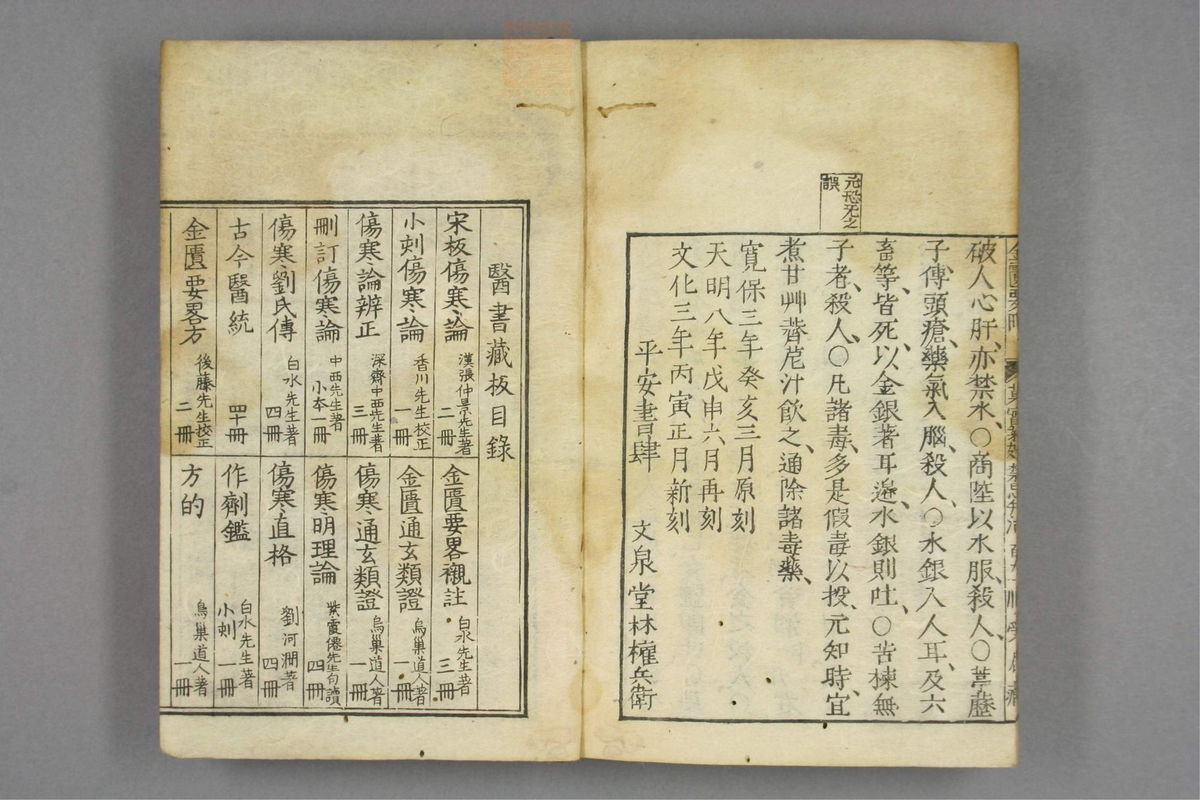 元恐无之
誤
破人心肝、亦禁水、○商陸以水服、殺人、○葶藶
子、傳頭瘡、藥氣入腦、殺人、○水銀入人耳、及六
畜等、皆死、以金銀著耳邊、水銀則吐、○苦楝無
子者、殺人、○凡諸毒、多是假毒以投、元知時、宜
煮甘艸薺苨汁飲之、通除諸毒藥、
寬保三年癸亥三月原刻
天明八年戊申六月再刻
文化三年丙寅正月新刻
平安書肆 文泉堂林權兵衛
醫書藏板目錄
宋板傷寒論 漢張仲景先生著 二冊
金匱要畧襯註 白水先生著 三冊
小刻傷寒論 香川先生校正 一冊
金匱通玄類證 烏巢道人著 一冊
傷寒論辨正 深齋中西先生著 三冊
傷寒通玄類證 烏巢道人著 一冊
刪訂傷寒論 中西先生著 小本一冊
傷寒明理論 紫霞僊先生句讀 四冊
傷寒劉氏傳 白水先生著 四冊
傷寒直格 劉河澗著 四冊
古今醫統 四十冊
作劑鑑 白水先生著 小刻一冊
金匱要畧方 後藤先生校正 二冊
方的 烏巢道人著 一冊